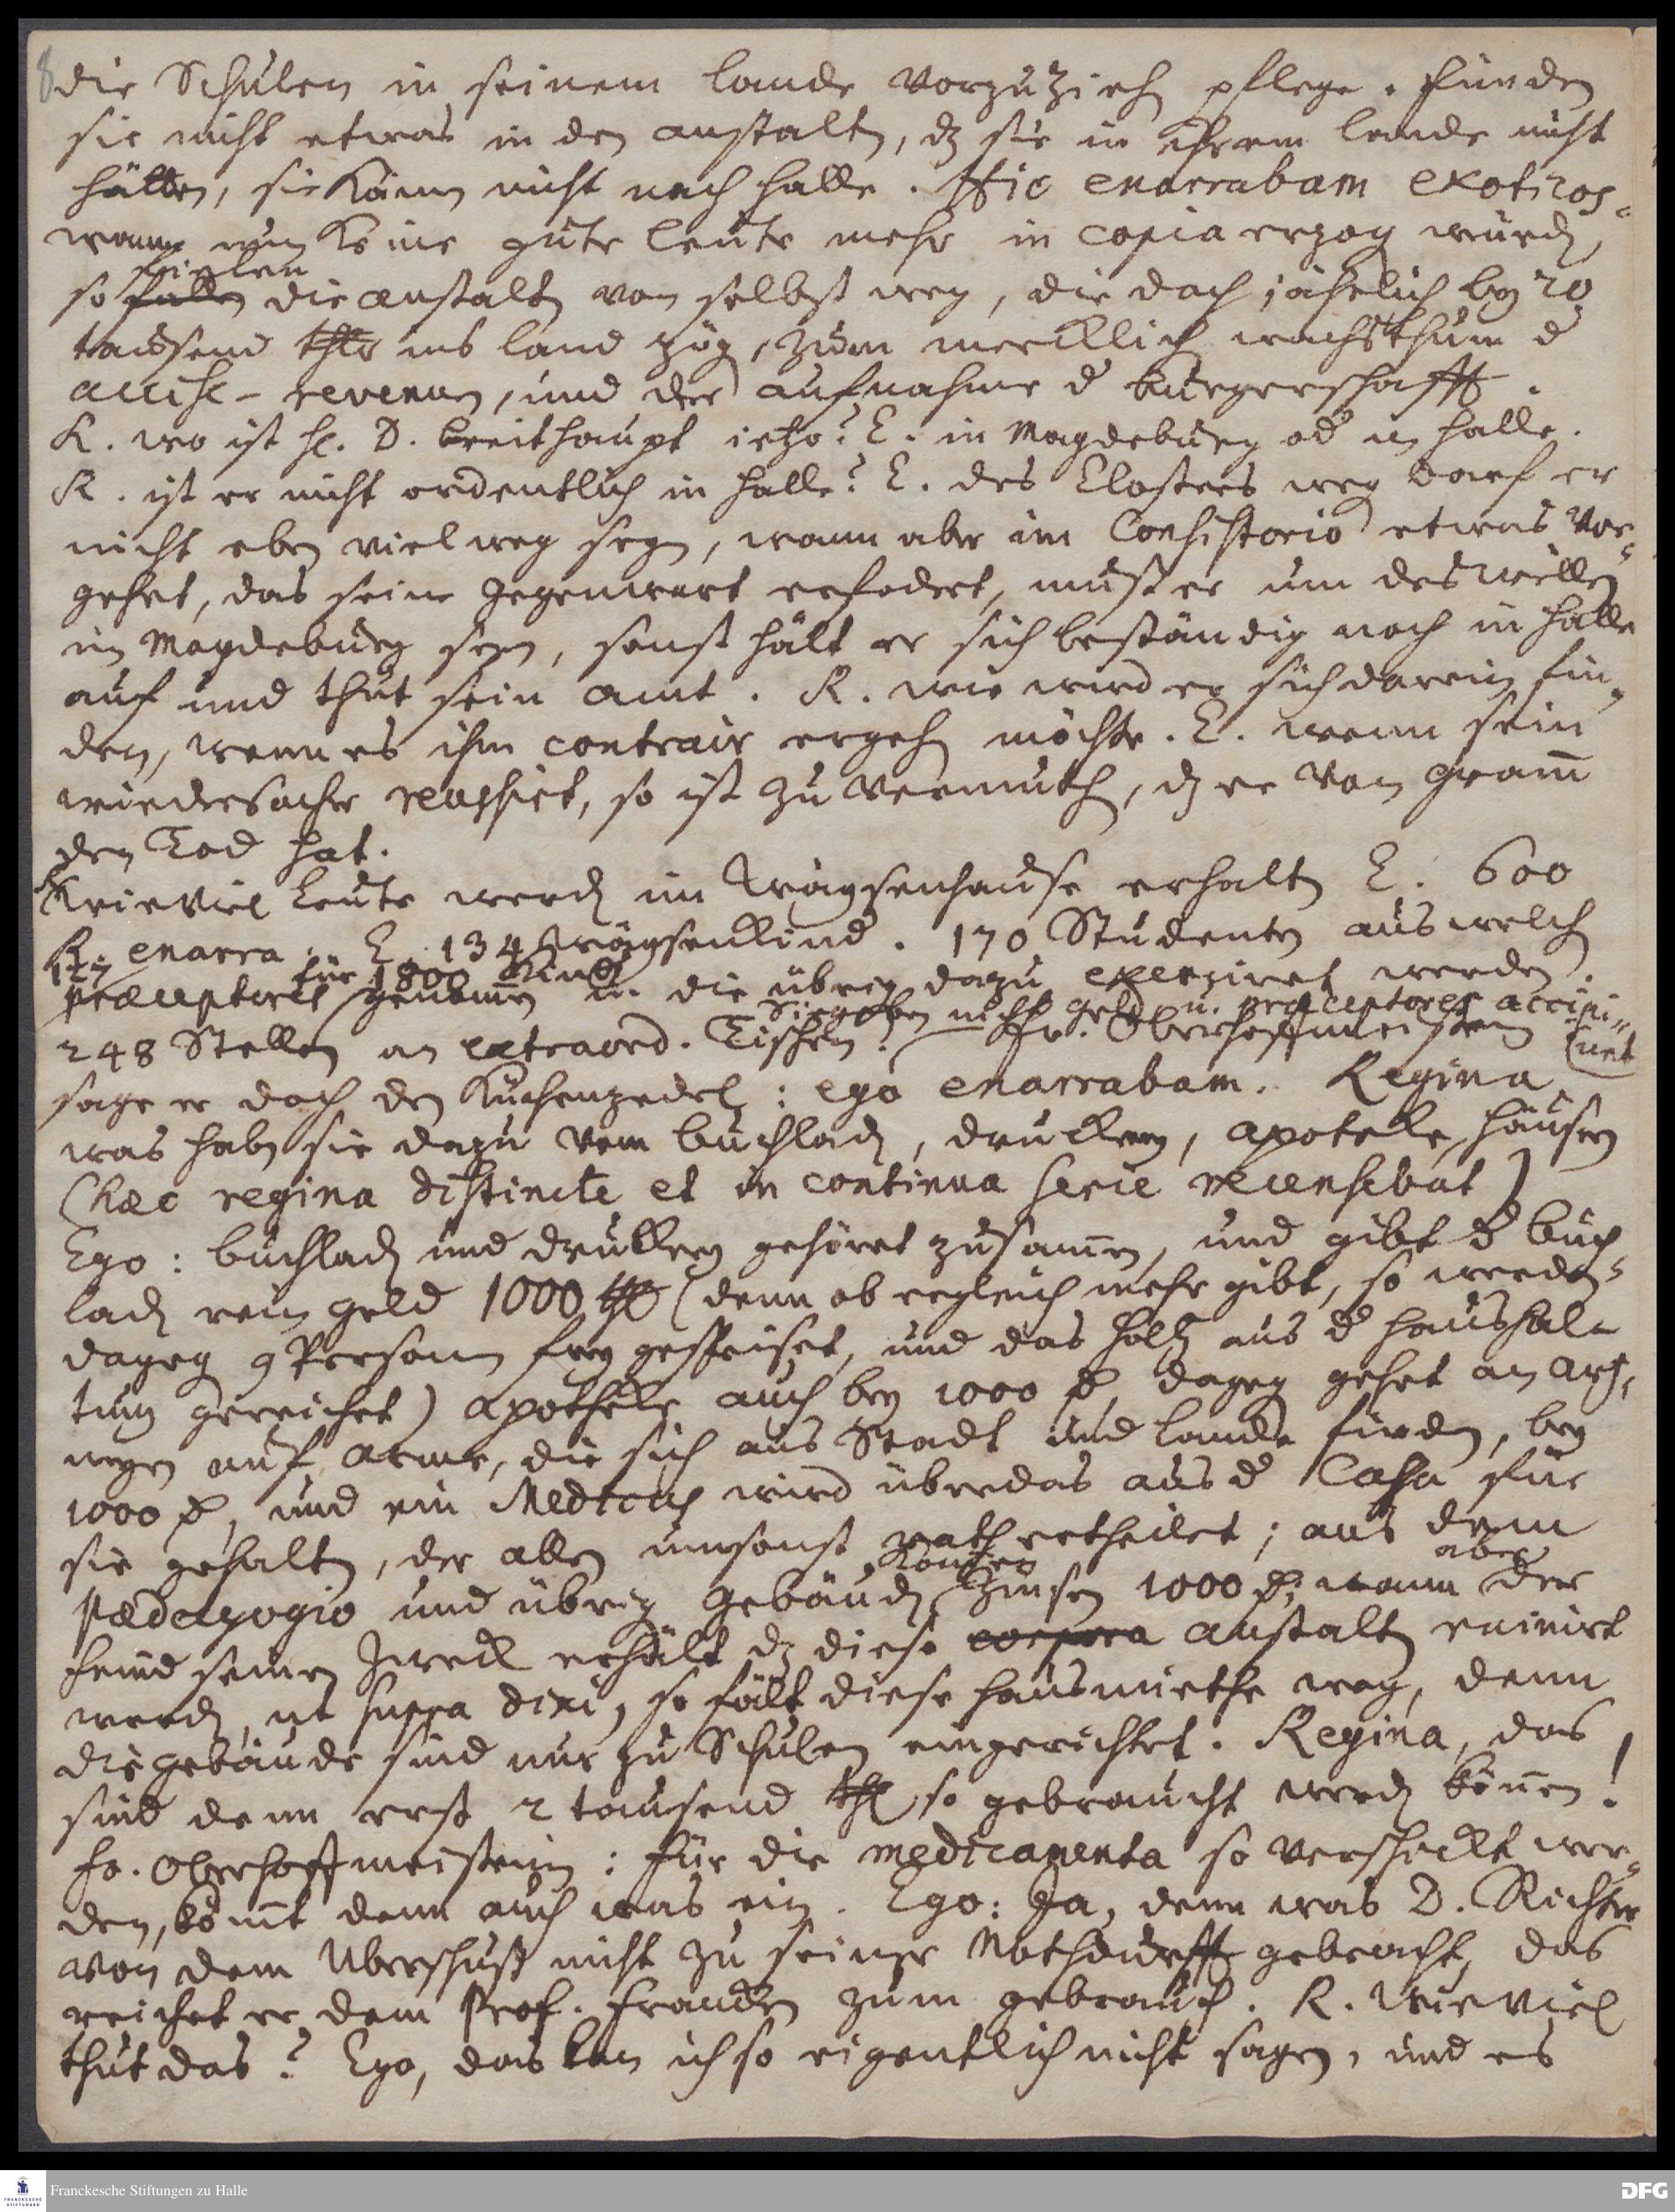 8 die Schulen in seinem lande vorzuzieh pflege. funden
sie nicht etwas in den anstalten, dz sie in ihrem lande nicht
hätten, sie kämen nicht nach halle. Hic enarrabam exoticos-
wann nun keine gute leute mehr in copia erzog würd,
fielen
so fallen die anstalten von selbst weg, die doch jährlich bey 20
tausend thlr ins land zög, zum mercklich wachsthum d
accise-revenuen, und der aufnahme d bürgerschafft.
K. wo ist H. D. breithaupt ietzo? E. in Magdeburg od in halle.
K. ist er nicht ordentlich in halle? E. des Closters weg darf er
nicht eben viel weg seyn, wann aber im Consistorio etwas vor-
gehet, das seine gegenwart erfodert, muß er um deswillen
in Magdeburg seyn, sonst hält er sich beständig noch in halle
auf und thut sein amt. K. wie wird er sich darein fin-
den, wenn es ihm contrair ergeh möchte. E. wenn sein
wiedersacher reussirt, so ist zu vermuth, dz er von gram
den Tod hat.
Wie viel leute werd im Wäysenhause erhalten E. 600
K. enarra: E. 134 wäysenkind. 170 Studenten aus welch
127 für 1800 Kind
præceptores genommen u. die übrig dazu exerziret werden.
Sie geben nicht geld u. præceptores accipi-
unt
248 Stellen an extraord. Tischen. Fr. Oberhoffmeisterin
sage er doch den Küchenzedel: ego enarrabam. Regina
was haben sie dazu vom buchlad, druckerey, apoteke, häusern
(hæc regina distincte et in continua serie recensebat)
Ego: buchlad und druckerey gehöret zusamen, und gibt d buch-
lad rein geld 1000 thl (denn ob er gleich mehr gibt, so werden
dageg 9 Personen frey gespeiset, und das holtz aus d haushal-
tung gereichet) apotheke auch bey 1000 thl, dageg gehet an artz-
neyen auf arme, die sich aus Stadt und lande finden, bey
1000 thl, und ein Medicus wird überdas aus d Cassa für
sie gehalten, der allen umsonst rath ertheilet; aus dem
Pædagogio und übrig gebäud können zinsen 1000 thl; wann aber der
feind seinen Zweck erhält dz diese corpora anstalten ruinirt
werd, ut supra dixi, so fält diese hausmiethe weg, denn
die gebäude sind nur zu Schulen eingerichtet. Regina, das
sind denn erst 2 tausend thl so gebraucht werd können!
fr. Oberhoffmeisterin: für die medicamenta so verschickt wer-
den, kömt denn auch was ein. Ego: Ja, denn was D. Richter
von dem Überschuß nicht zu seiner Nothdurfft gebraucht, das
reichet er dem Prof. Francken zum gebrauch. K. Wie viel
thut das? Ego, das kan ich so eigentlich nicht sagen, und es
Franckesche Stiftungen zu Halle
FRANCKESCHE STIFTUNGEN
DFG